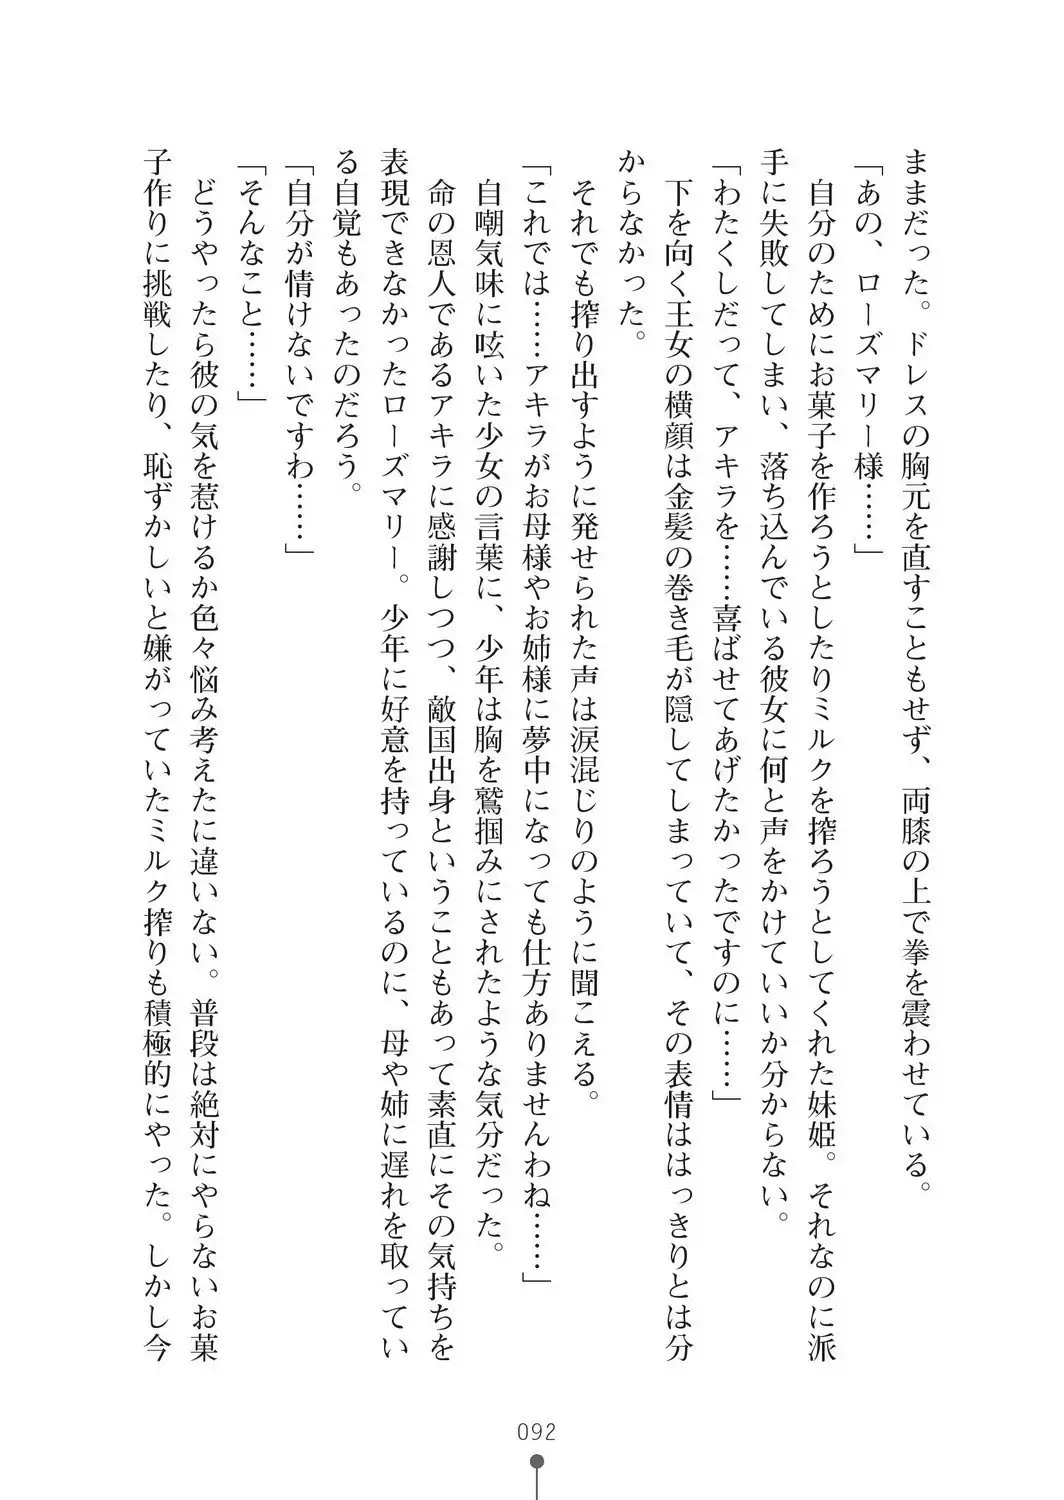 ままだった。ドレスの胸元を直すこともせず、両膝の上で拳を震わせている。
「あの、ローズマリー様……」
自分のためにお菓子を作ろうとしたりミルクを搾ろうとしてくれた妹姫。それなのに派
手に失敗してしまい、落ち込んでいる彼女に何と声をかけていいか分からない。
「わたくしだって、アキラを……喜ばせてあげたかったですのに……」
下を向く王女の横顔は金髪の巻き毛が隠してしまっていて、その表情ははっきりとは分
からなかった。
それでも搾り出すように発せられた声は涙混じりのように聞こえる。
「これでは……アキラがお母様やお姉様に夢中になっても仕方ありませんわね……」
自嘲気味に呟いた少女の言葉に、少年は胸を鷲掴みにされたような気分だった。
命の恩人であるアキラに感謝しつつ、敵国出身ということもあって素直にその気持ちを
表現できなかったローズマリー。少年に好意を持っているのに、母や姉に遅れを取ってい
る自覚もあったのだろう。
「自分が情けないですわ……」
「そんなこと……」
どうやったら彼の気を惹けるか色々悩み考えたに違いない。普段は絶対にやらないお菓
子作りに挑戦したり、恥ずかしいと嫌がっていたミルク搾りも積極的にやった。しかし今
092